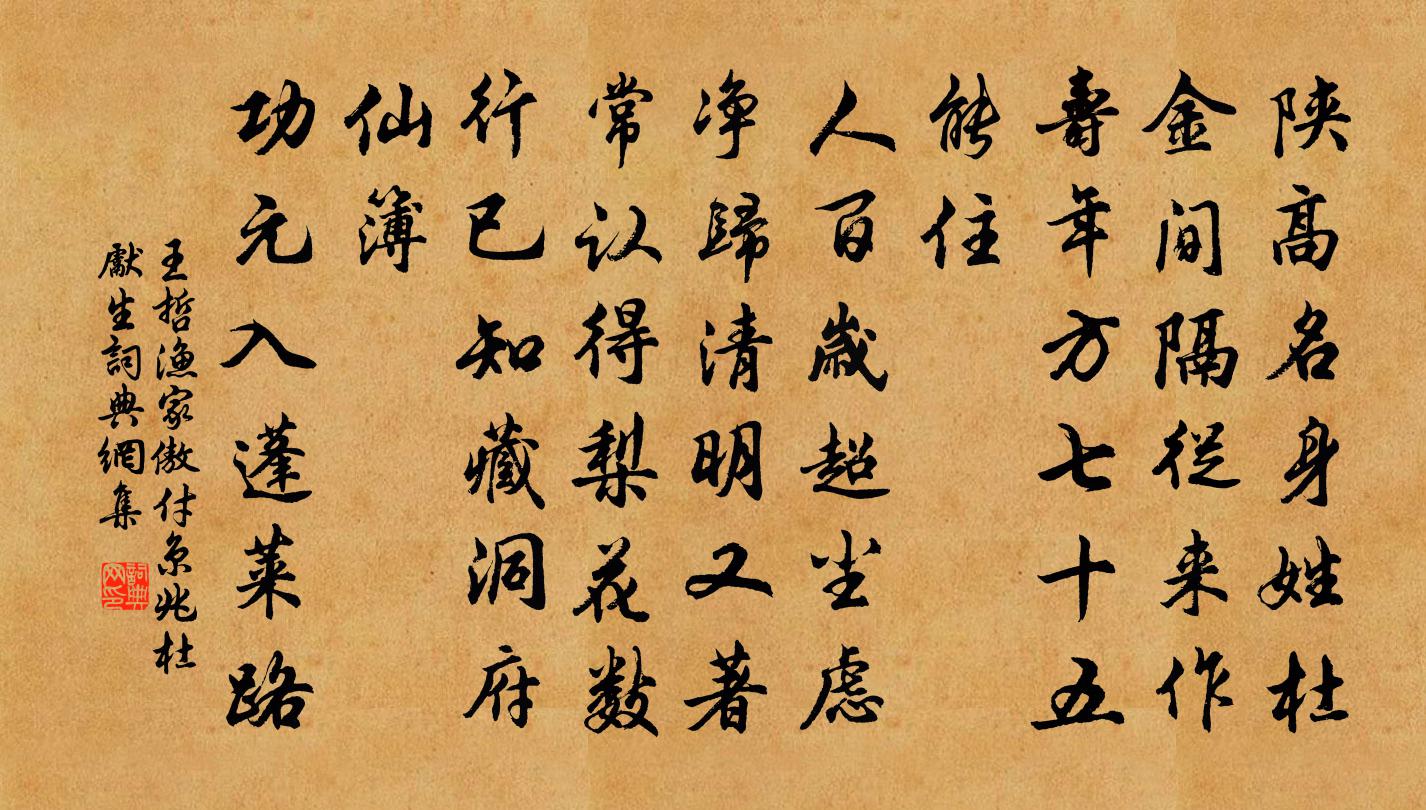 陝高名身姓杜
金间隔從来作
壽年方七十五
能住
人百歲超尘慮
净歸清明又著
常认得梨花数
行已知藏洞府
仙簿
功元入蓬莱路
王哲渔家傲付京兆杜
獻生詞典網集
詞典网印